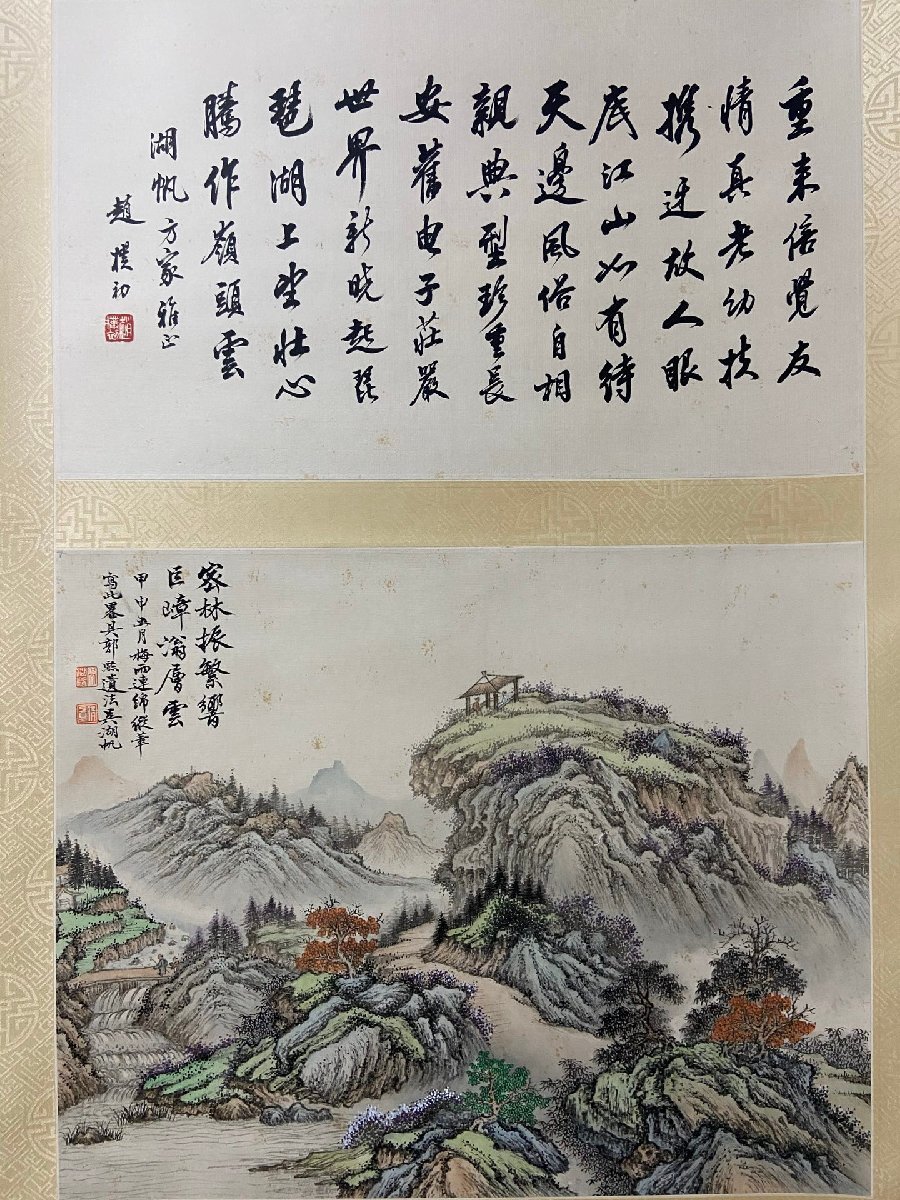 重来倍覺友
情真老幼扶
携迓故人眼
底江山如有待
天邊風俗自相
親典型珍重長
安舊由子莊嚴
世界新晓起琵
琶湖上坐壯心
騰作嶺頭雲
湖帆方家雅正
趙樸初
密林振繁響
巨嶂滃層雲
甲申五月梅雨連綿縱筆
寫此畧具郭熙遺法吳湖帆